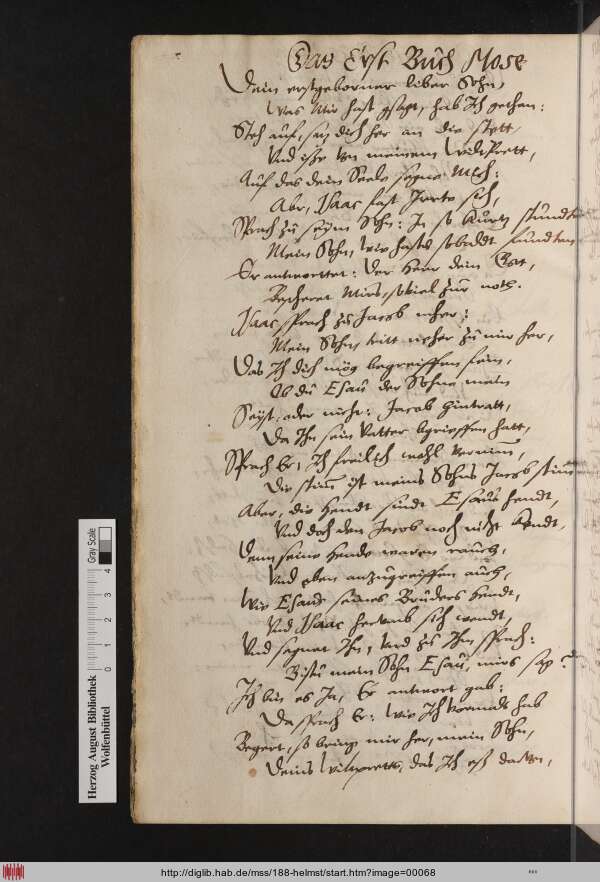 Das Erst Buch Mose
Dein erstgeborner lieber Sohn,
Was Mir hast gsagt, hab Ich gethan:
Steh auf, setz dich her an die stett,
Und isse von meinem Wildprett,
Auf das dein Seele segne Mich:
Aber, Isaac fast Irrte sich,
Sprach zu seym Sohn: In so kurtz stundten
Mein Sohn, wie hasts so baldt fundten
Er antwortet: Der Herr dein Gott,
Bescheret Mirs, soviel zur noth.
Isaac sprach zu Jacob neher:
Mein Sohn, tritt neher zu mir her,
Das Ich dich mög begreiffen fein,
Ob du Esau der Sohne mein
Seyst, oder nicht: Jacob hintratt,
Da Ihn sein Vatter begrieffen hatt,
Sprach Er, Ich freilich wohl vernimm,
Die stim ist meins Sohns Jacob stim
Aber, die Hendt sindt Esaus hendt,
Und doch den Jacob noch nicht kendt,
Denn seine Hende waren rauch,
Und eben anzugreiffen auch,
Wie Esaus seines Bruders Hendt,
Und Isaac sich wendt,
Und segnet Ihn, und zu Ihm sprach:
Bistu mein Sohn Esau, mirs sag?
Ich bin es Ja, Er antwort gab:
Da sprach Er: Wie Ich vormals hab
Begert, so bring mir her, mein Sohn,
Deins Wildpretts, das Ich eß davon,
Herzog August Bibliothek
Wolfenbüttel
0 1 2 3 4
Gray Scale
http://diglib.hab.de/mss/188-helmst/start.htm?image=00068